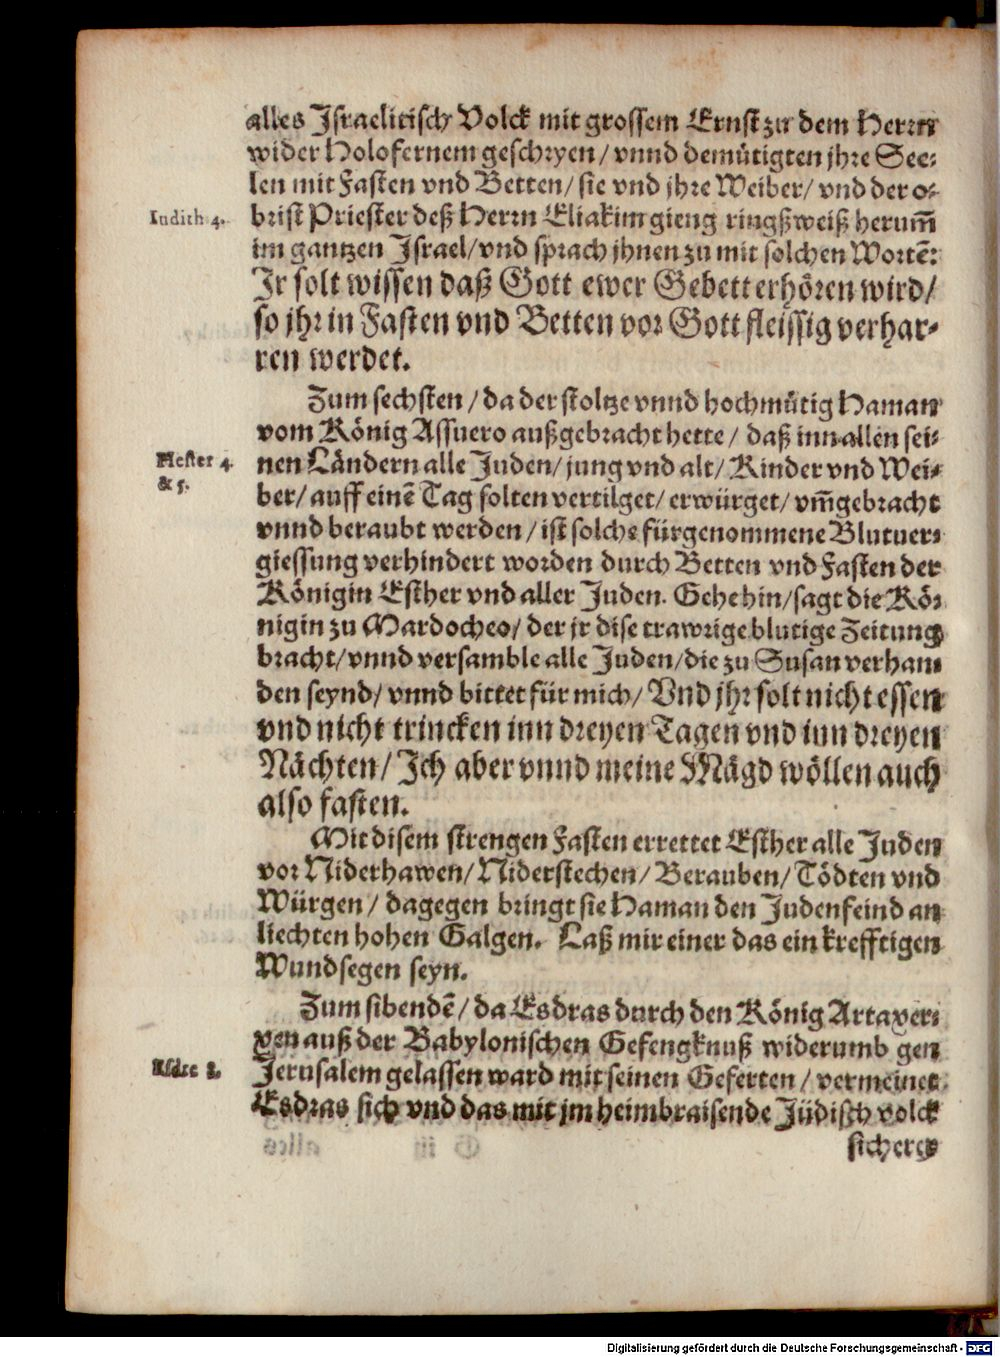 alles Israelitisch Volck mit grossem Ernst zu dem Herrn
wider Holofernem geschryen / vnnd demütigten jhre See-
len mit Fasten vnd Betten / sie vnd jhre Weiber / vnd der o-
Iudith 4.
brist Priester deß Herrn Eliakim gieng ringßweiß herum̃
im gantzen Israel / vnd sprach jhnen zu mit solchen Wortẽ:
Ir solt wissen daß Gott ewer Gebett erhören wird /
so jhr in Fasten vnd Betten vor Gott fleissig verhar-
ren werdet.
Zum sechsten / da der stoltze vnnd hochmütig Haman
vom König Assuero außgebracht hette / daß inn allen sei-
Hester 4.
& 5.
nen Ländern alle Juden / jung vnd alt / Kinder vnd Wei-
ber / auff einẽ Tag solten vertilget / erwürget / vm̃gebracht
vnnd beraubt werden / ist solche fürgenommene Blutuer-
giessung verhindert worden durch Betten vnd Fasten der
Königin Esther vnd aller Juden. Gehe hin / sagt die Kö-
nigin zu Mardocheo / der jr dise trawrige blutige Zeitung
bracht / vnnd versamble alle Juden / die zu Susan verhan-
den seynd / vnnd bittet für mich / Vnd jhr solt nicht essen
vnd nicht trincken inn dreyen Tagen vnd inn dreyen
Nächten / Ich aber vnnd meine Mägd wöllen auch
also fasten.
Mit disem strengen Fasten errettet Esther alle Juden
vor Niderhawen / Niderstechen / Berauben / Tödten vnd
Würgen / dagegen bringt sie Haman den Judenfeind an
liechten hohen Galgen. Laß mir einer das ein krefftigen
Wundsegen seyn.
Zum sibendẽ / da Esdras durch den König Artaxer-
xen auß der Babylonischen Gefengknuß widerumb gen
Esdre 8.
Jerusalem gelassen ward mit seinen Geferten / vermeinet
Esdras sich vnd das mit jm heimbraisende Jüdisch volck
sicherge
Digitalisierung gefördert durch die Deutsche Forschungsgemeinschaft - DFG